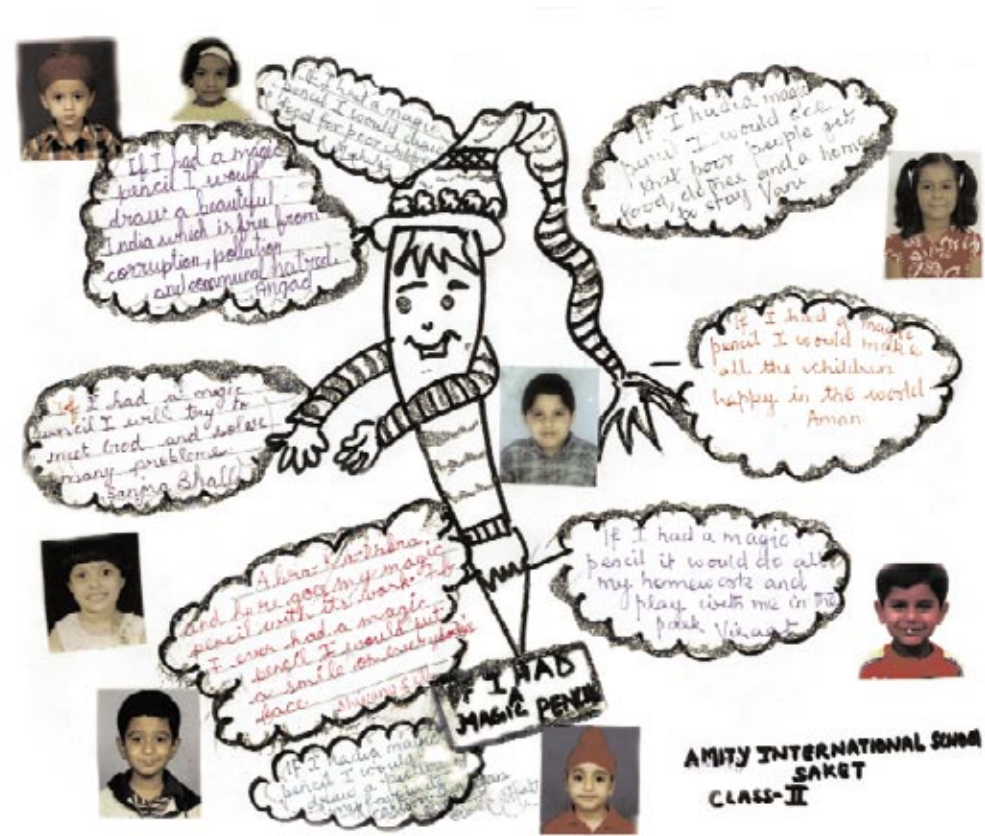 If I had a magic
pencil I would
food for poor children
If I had a magic
pencil I would
draw a beautiful
India which is free from
corruption, pollution
and communal hatred.
Angad
If I had a magic
pencil I would see
that poor people get
food, clothes and a home
to stay Vani
If I had a magic
pencil I would make
all the children
happy in the world
Aman
If I had a magic
pencil I will try to
meet God and solve
many problems.
Sanjna Bhalla
If I had a magic
pencil it would do all
my homework and
play with me in the
park Viraat
and here goes my magic
pencil with its work. If
I ever had a magic
pencil I would put
a smile on everybody's
face.
IF I HAD
A
MAGIC PENCIL
If I had a magic
pencil I would
draw a
my favourite
AMITY INTERNATIONAL SCHOOL
SAKET
CLASS-II